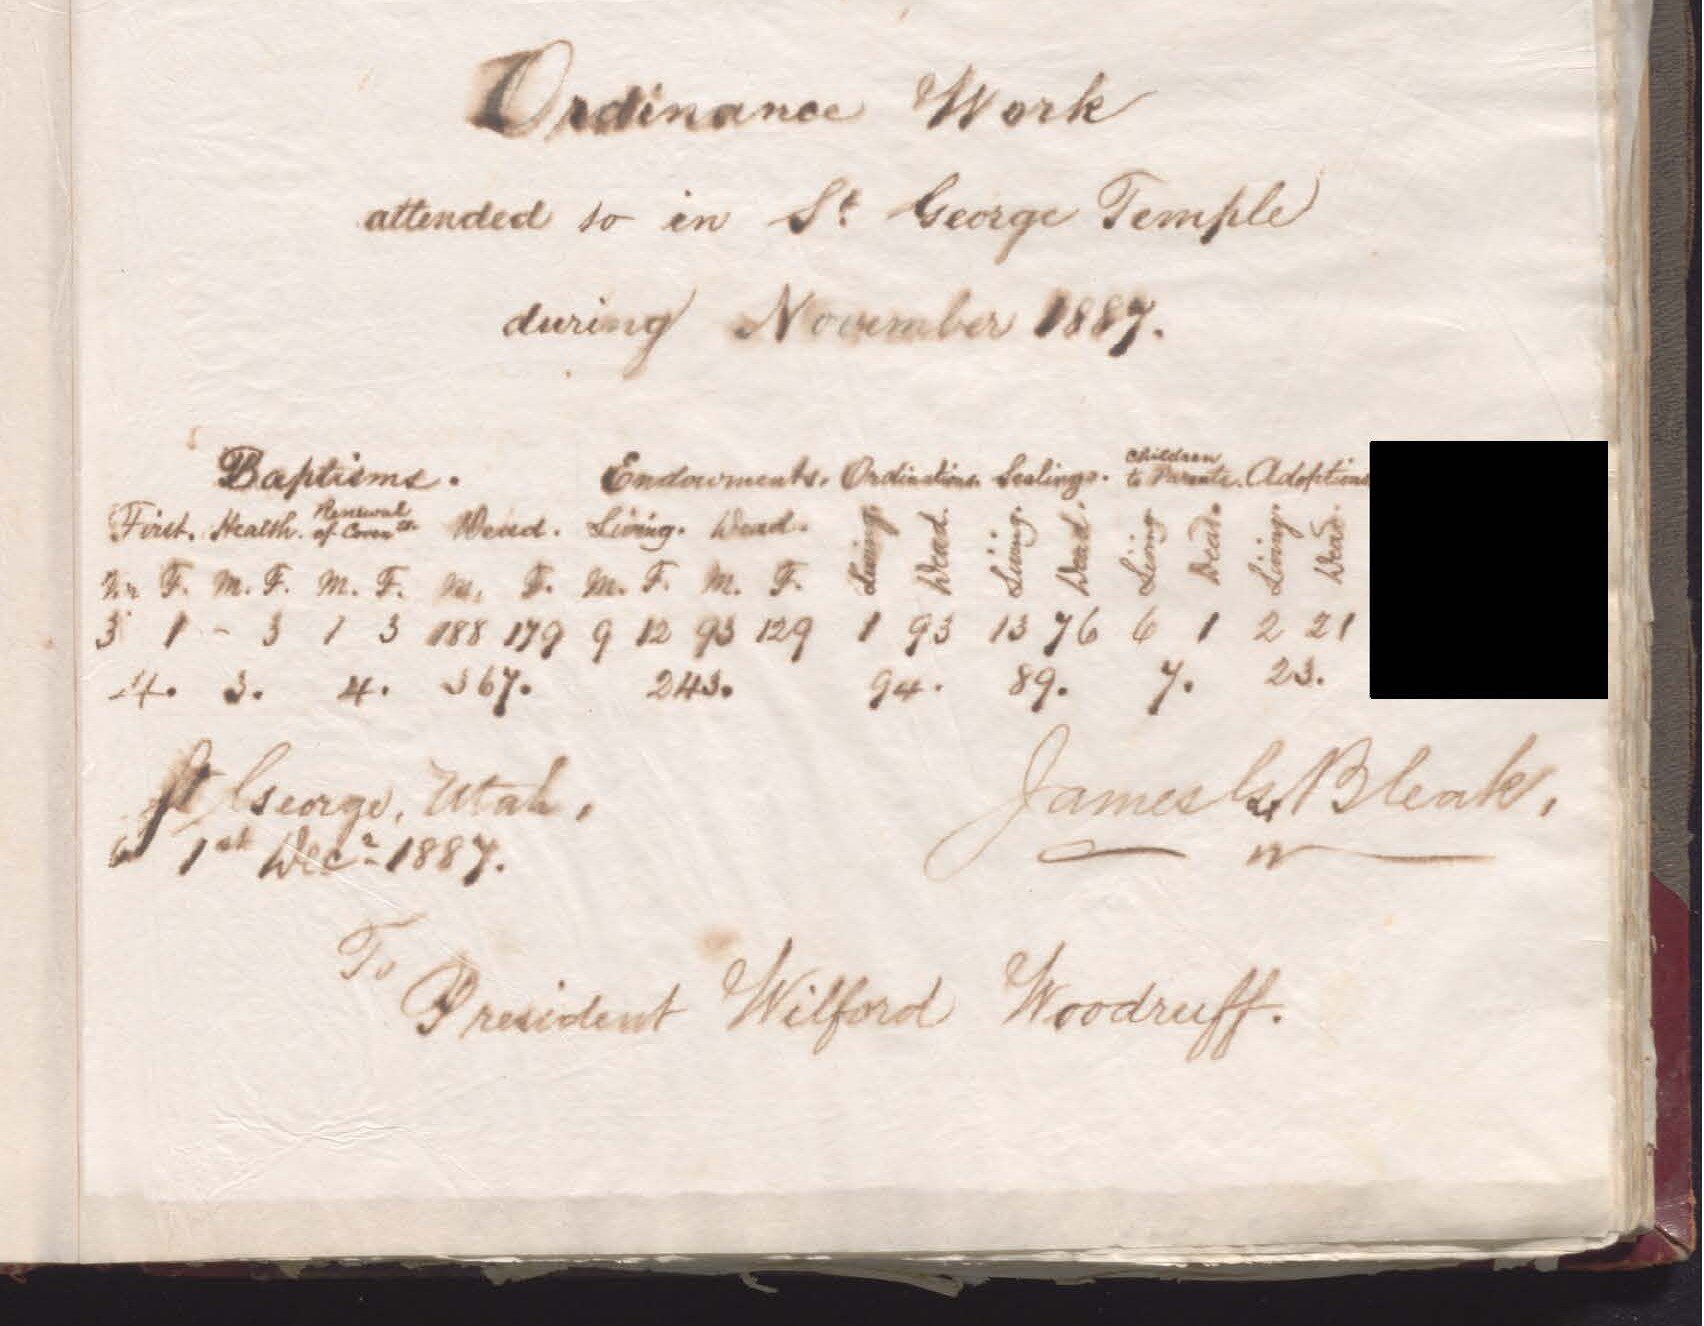 Ordinance Work
attended to in St George Temple
during November 1887.
Baptisms. Endowments. Ordinations. Sealings. Children to Parents. Adoptions
First. Health. Renewal of Coven ts. Dead. Living. Dead. Living. Dead. Living. Dead. Living Dead. Living. Dead.
M. F. M. F. M. F. M. F. M. F. M. F.
3 1 - 3 1 3 188 179 9 12 93 129 1 93 13 76 6 1 2 21
4. 3. 4. 367. 243. 94. 89. 7. 23.
St George, Utah,
1st Decr 1887.
James G. Bleak,
To
President Wilford Woodruff.